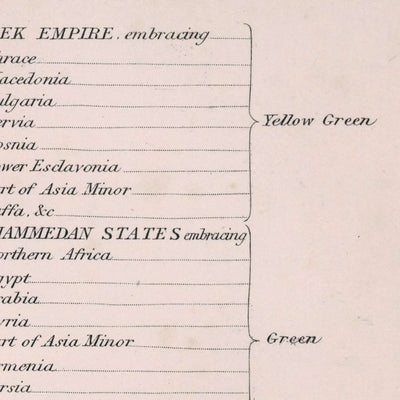 EK EMPIRE. embracing
hrace
acedonia
ulgaria
ervia
Yellow Green
osnia
ower Esclavonia
rt of Asia Minor
affa, &c
HAMMEDAN STATES embracing
orthern Africa
gypt
rabia
yria
rt of Asia Minor
Green
rmenia
rsia